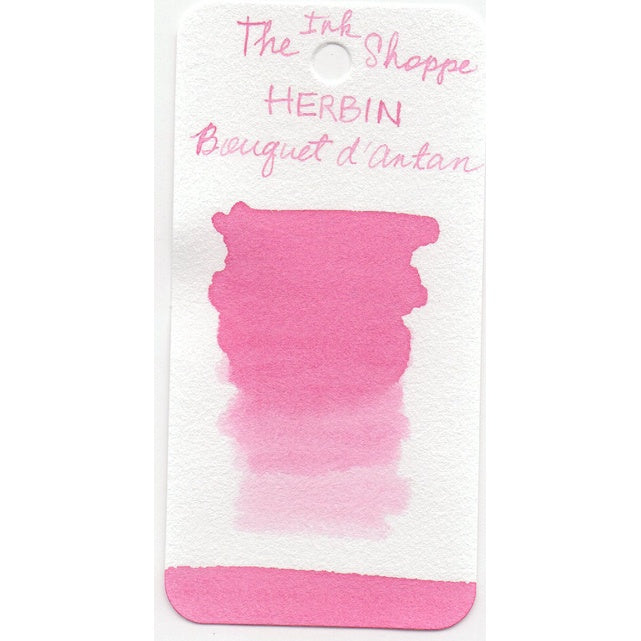 The Ink Shoppe
HERBIN
Bouquet d'Antan